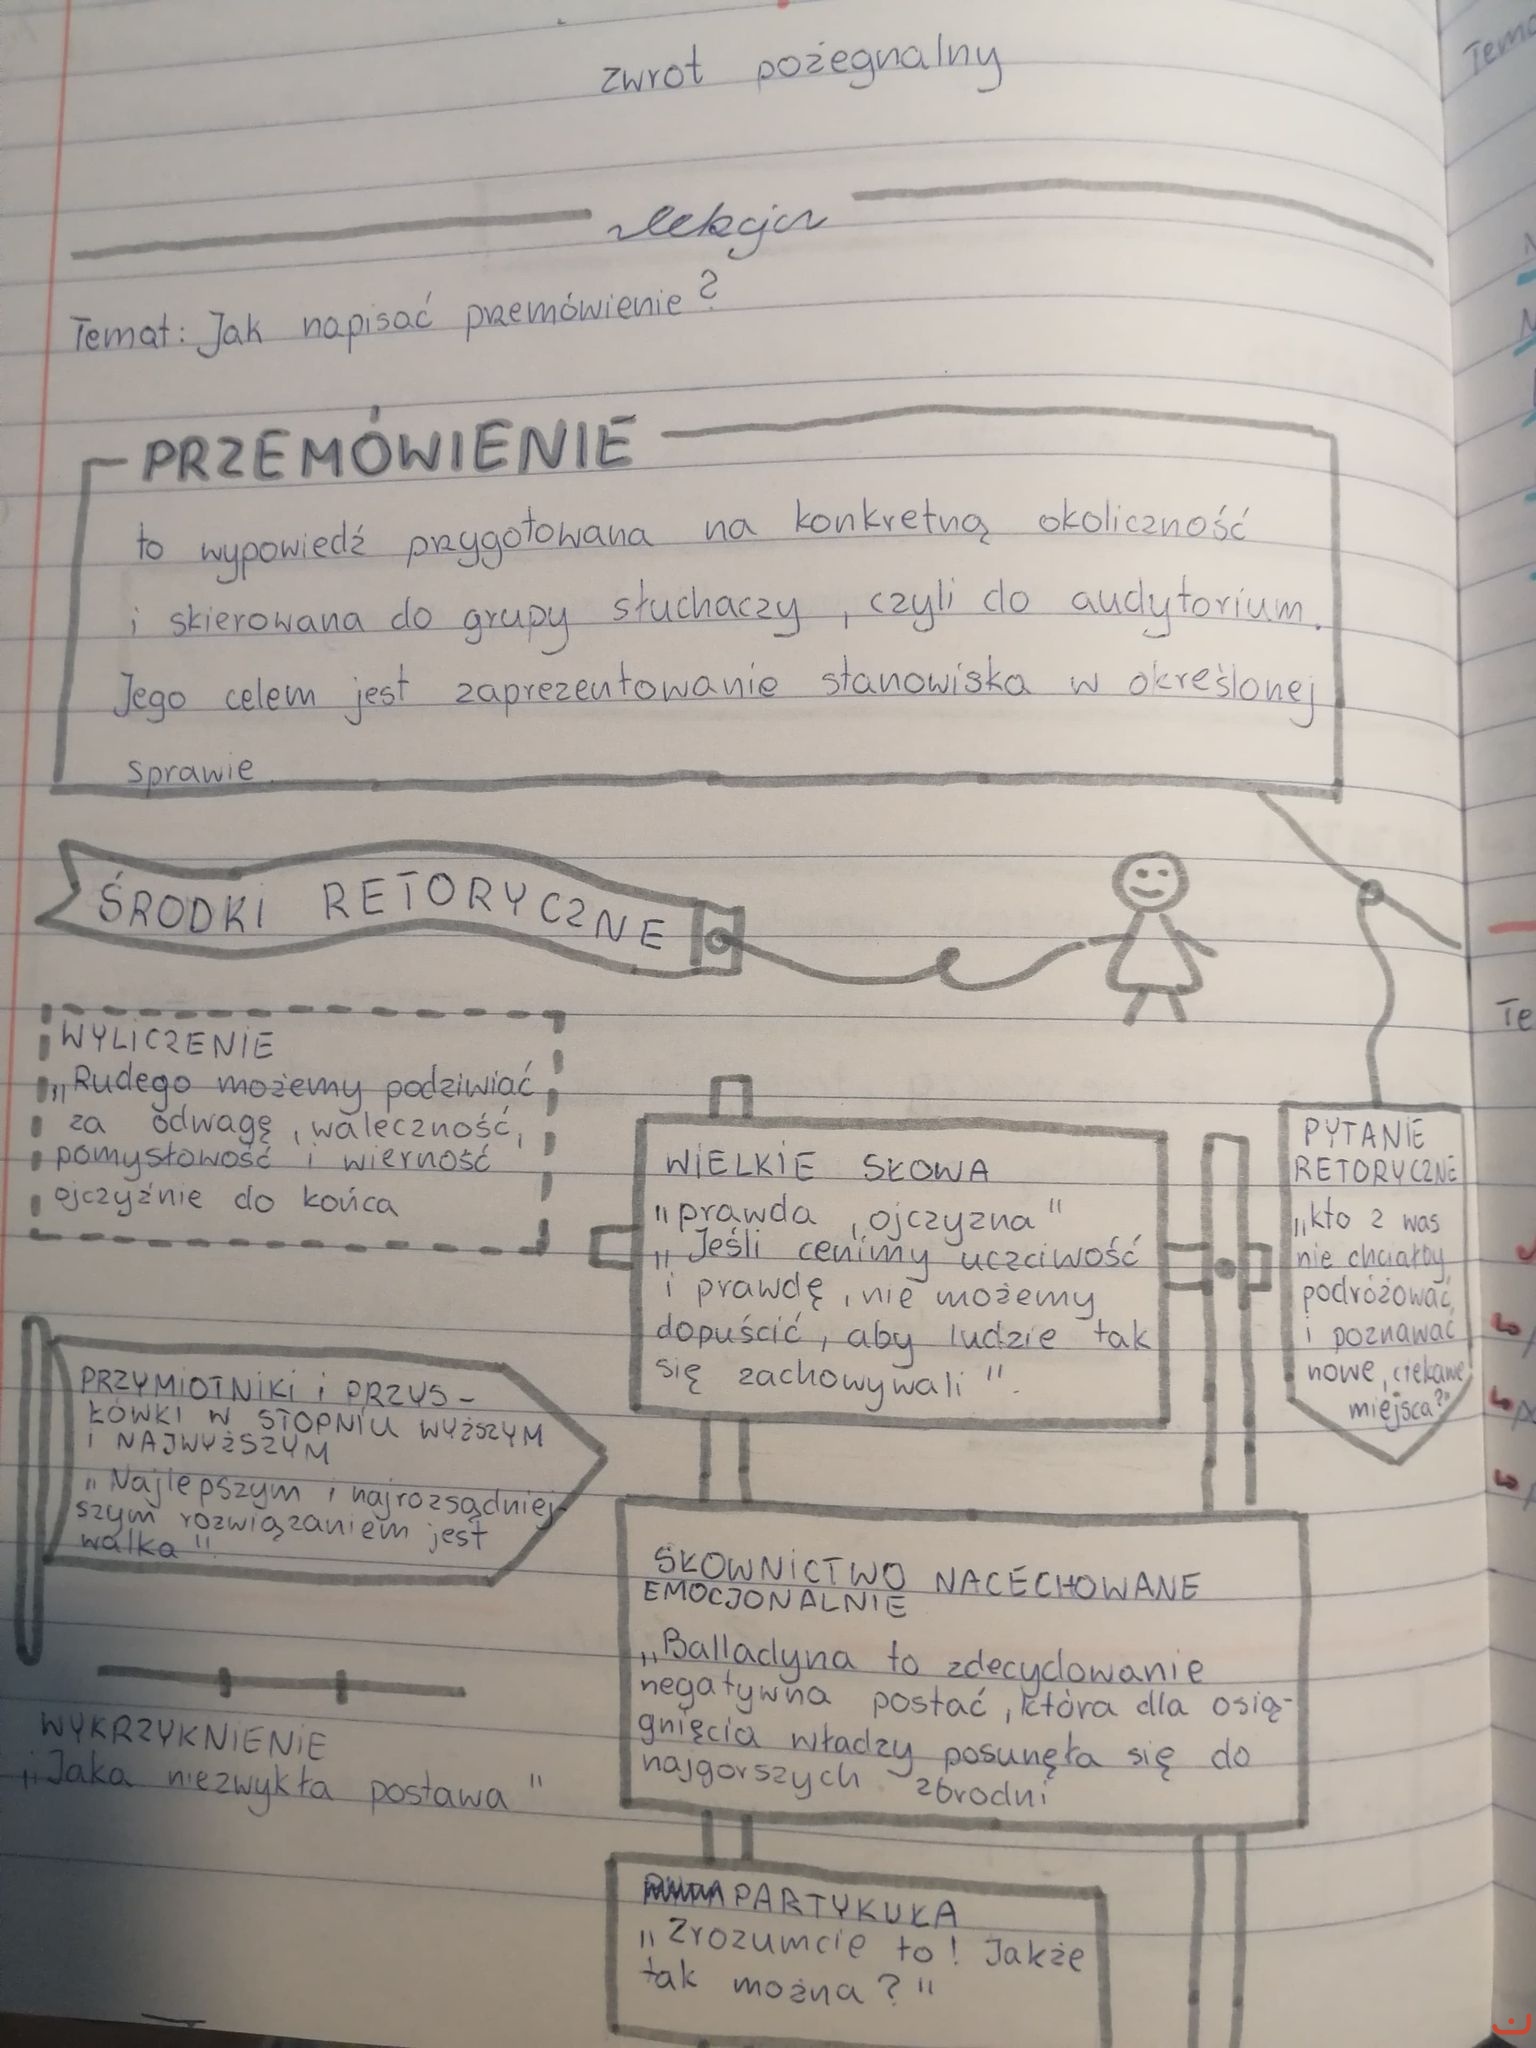 zwrot pożegnalny
lekcja
Temat: Jak napisać przemówienie?
PRZEMÓWIENIE
to wypowiedź przygotowana na konkretną okoliczność
i skierowana do grupy słuchaczy, czyli do audytorium.
Jego celem jest zaprezentowanie stanowiska w określonej
sprawie.
ŚRODKI RETORYCZNE
WYLICZENIE
„Rudego możemy podziwiać
za odwagę, waleczność,
pomysłowość i wierność
ojczyźnie do końca
WIELKIE SŁOWA
"prawda, ojczyzna"
„Jeśli cenimy uczciwość
i prawdę, nie możemy
dopuścić, aby ludzie tak
się zachowywali".
PYTANIE
RETORYCZNE
„kto z was
nie chciałby
podróżować,
i poznawać
nowe, ciekawe
miejsca?"
PRZYMIOTNIKI i PRZYS-
ŁÓWKI W STOPNIU WYŻSZYM
I NAJWYŻSZYM
"Najlepszym i najrozsądniej-
szym rozwiązaniem jest
walka"
SŁOWNICTWO NACECHOWANE
EMOCJONALNIE
„Balladyna to zdecydowanie
negatywna postać, która dla osią-
gnięcia władzy posunęła się do
najgorszych zbrodni
WYKRZYKNIENIE
„Jaka niezwykła postawa"
PARTYKUŁA
"Zrozumcie to! Jakże
tak można?"
Te